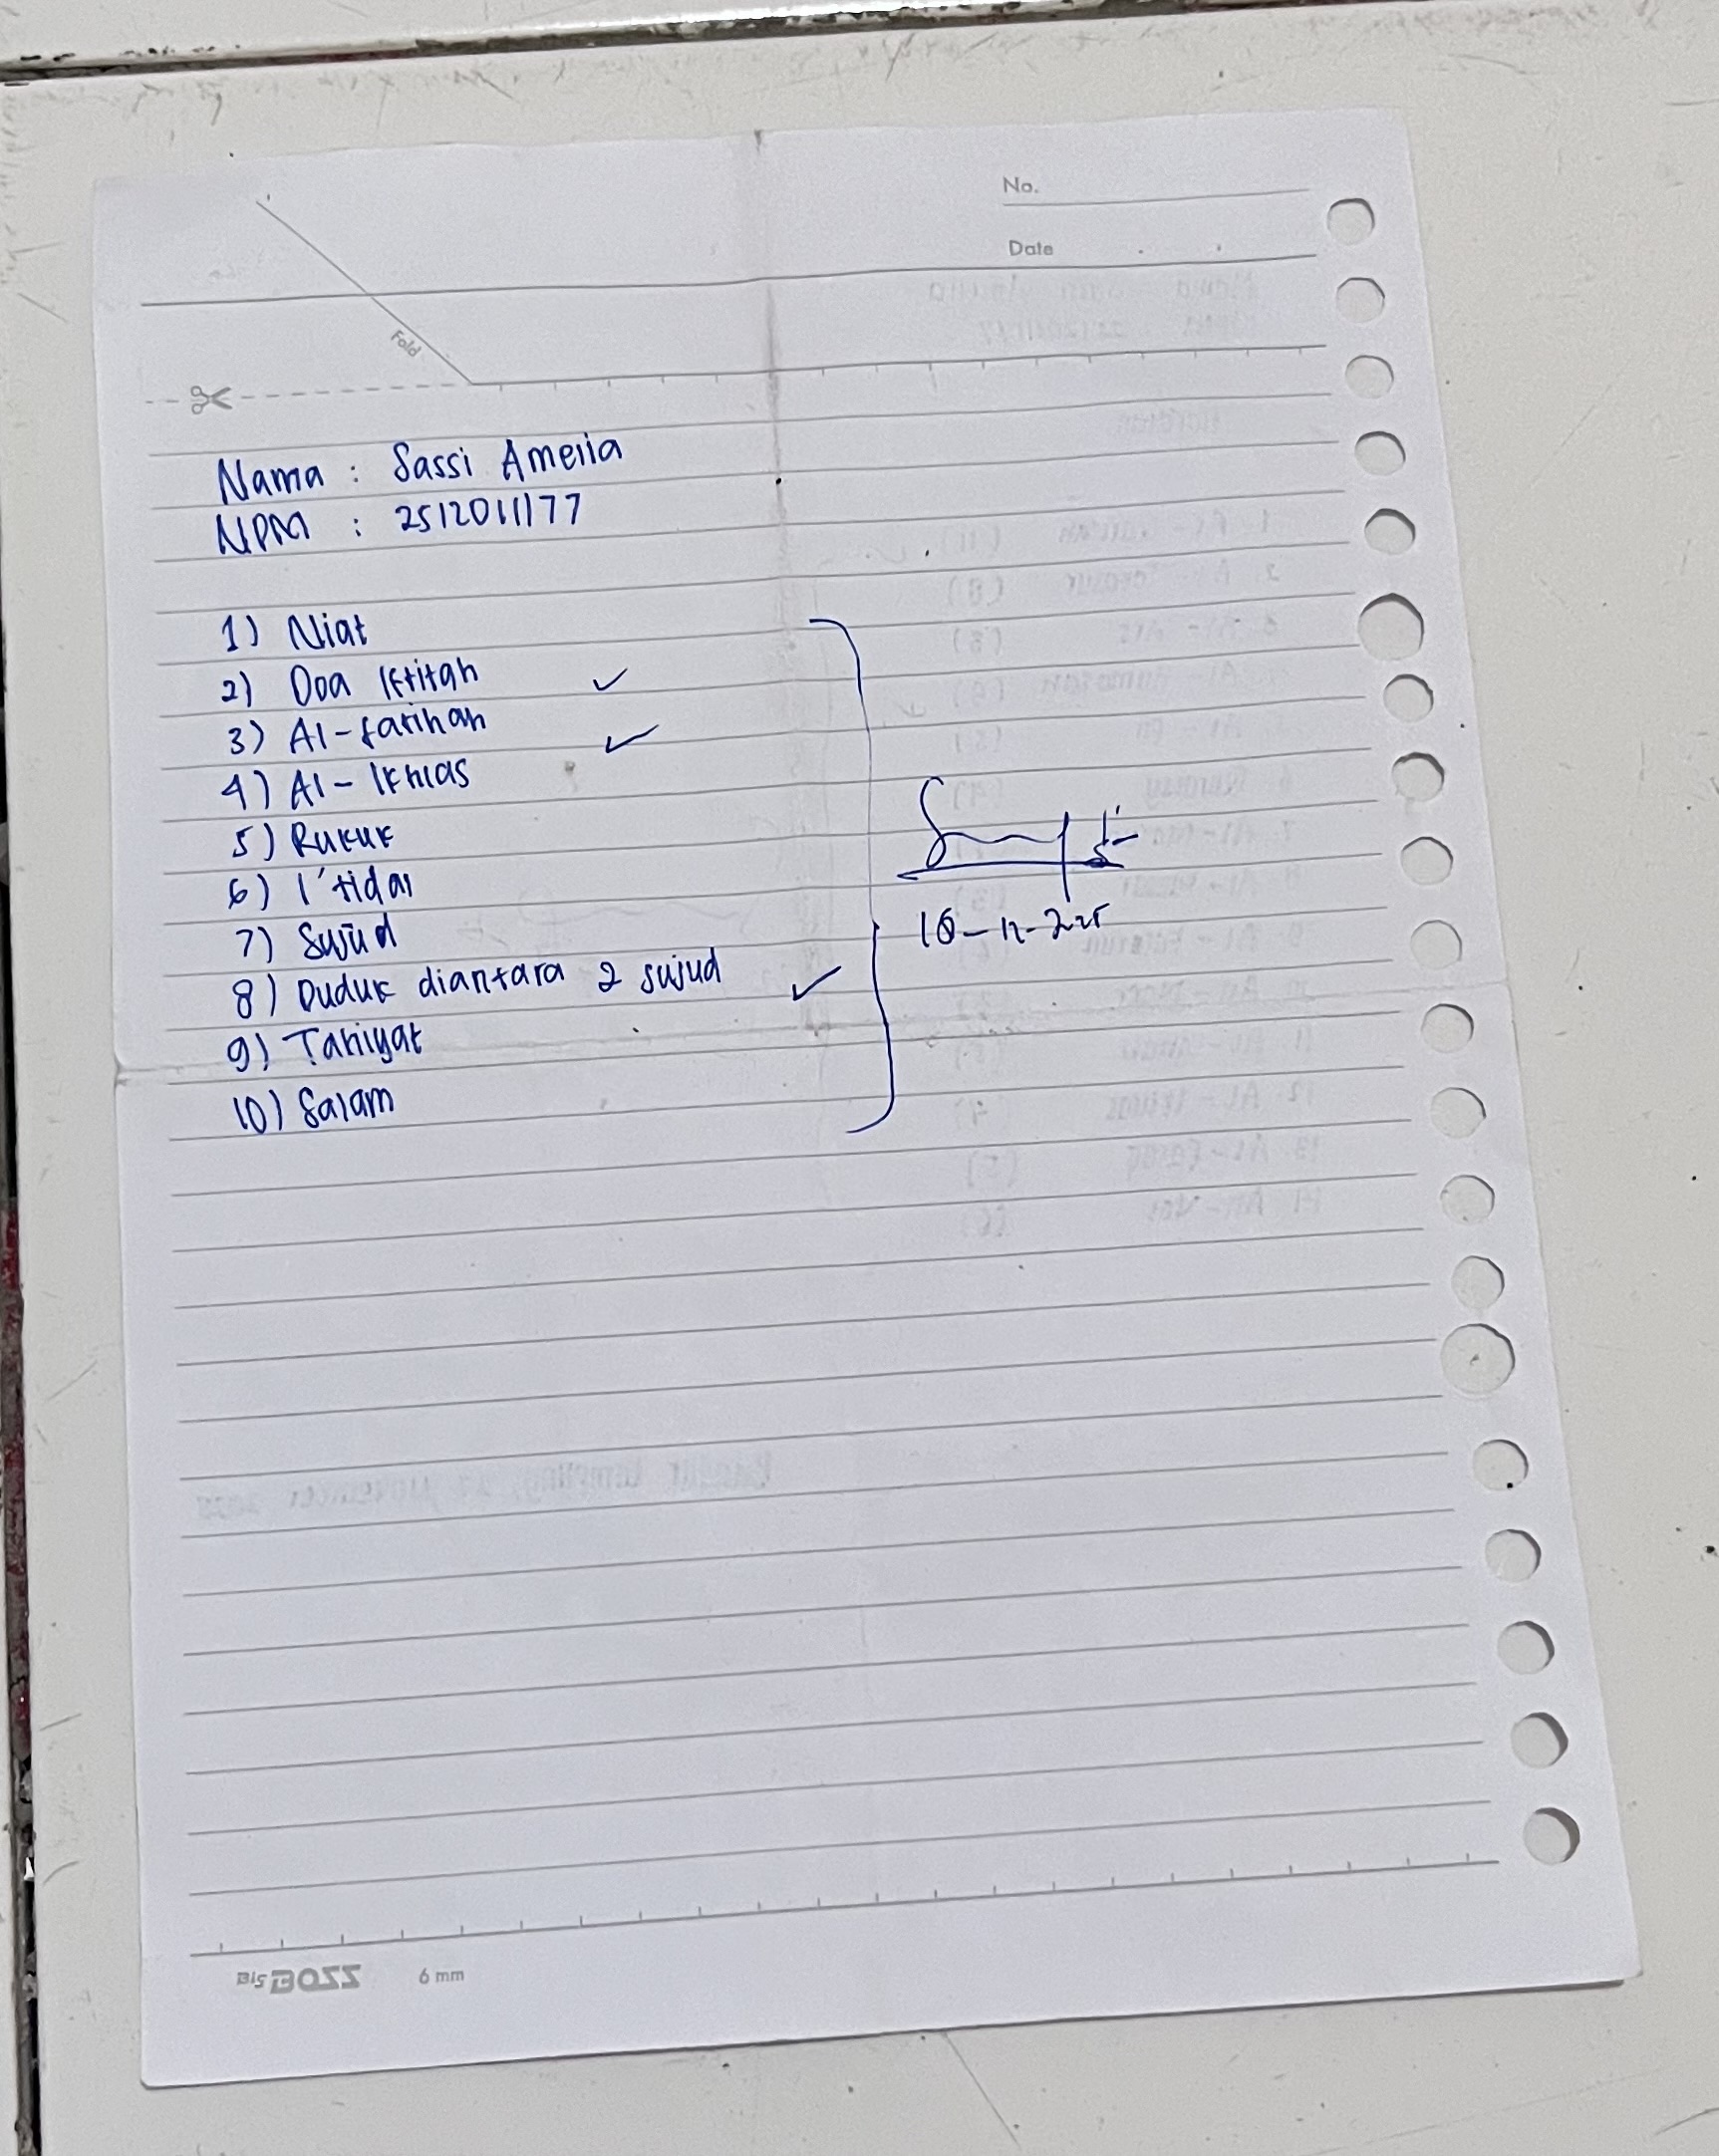 No.
Date
Fold
Nama : Sassi Amelia
NPM : 2512011177
1) Niat
2) Doa Iftitah ✓
3) Al-fatihah ✓
4) Al-Ikhlas
5) Rukuk
6) I'tidal
7) Sujud
8) Duduk diantara 2 sujud ✓
9) Tahiyat
10) Salam
Big BOSS 6 mm